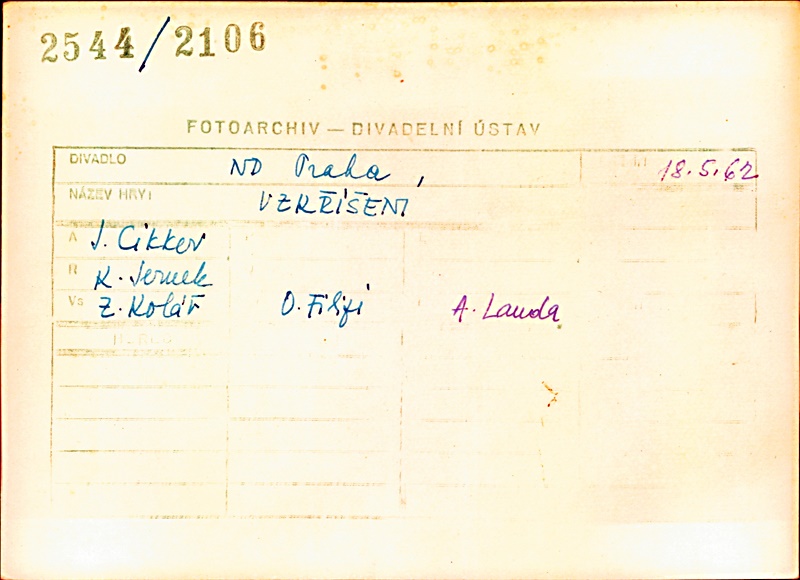 2544/2106
FOTOARCHIV — DIVADELNÍ ÚSTAV
DIVADLO ND Praha, 18.5.62
NÁZEV HRY: VZKŘÍŠENÍ
A J. Cikker
R K. Jernek
Vs Z. Kolář O. Filipi A. Landa